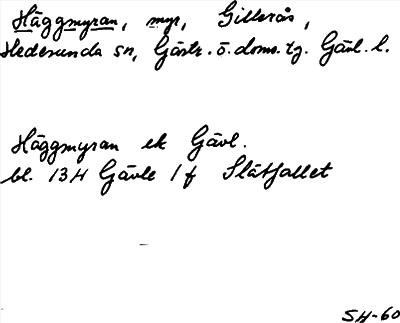 Häggmyran, myr, Gillerås,
Hedesunda sn, Gästr. ö. doms. tg. Gävl. l.
Häggmyran ek Gävl.
bl. 13H Gävle 1 f Slåtfallet
SH-60